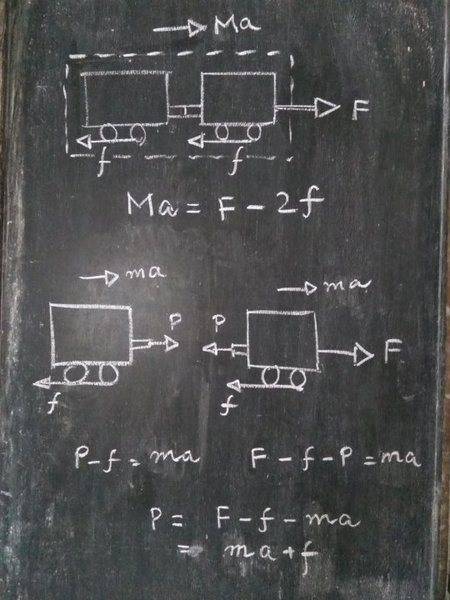 Ma
F
f f
Ma = F - 2f
ma ma
P P
F
f f
P-f = ma F - f - P = ma
P = F - f - ma
= ma + f